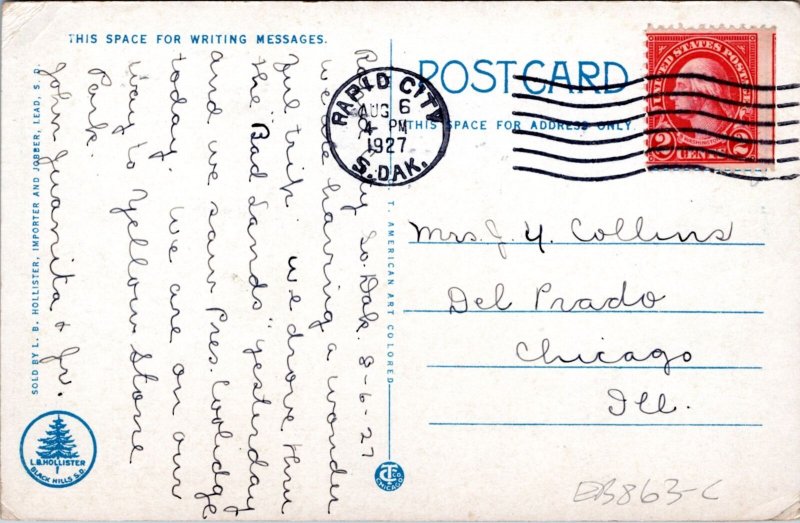 THIS SPACE FOR WRITING MESSAGES.
POST CARD
THIS SPACE FOR ADDRESS ONLY.
RAPID CITY
AUG 6
4 PM
1927
S. DAK.
UNITED STATES POSTAGE
WASHINGTON
2 CENTS 2
So. Dak. 8-6-27
we are having a wonder
ful trip. we drove thru
the "Bad Lands" yesterday
and we saw Pres. Coolidge
today. We are on our
way to Yellow Stone
Park.
John Juanita & Jr.
Mrs. J. Y. Collins
Del Prado
Chicago
Ill.
SOLD BY L. B. HOLLISTER, IMPORTER AND JOBBER, LEAD, S. D.
L.B. HOLLISTER
BLACK HILLS S.D.
C. T. AMERICAN ART COLORED
CT CO
CHICAGO
EB863-C